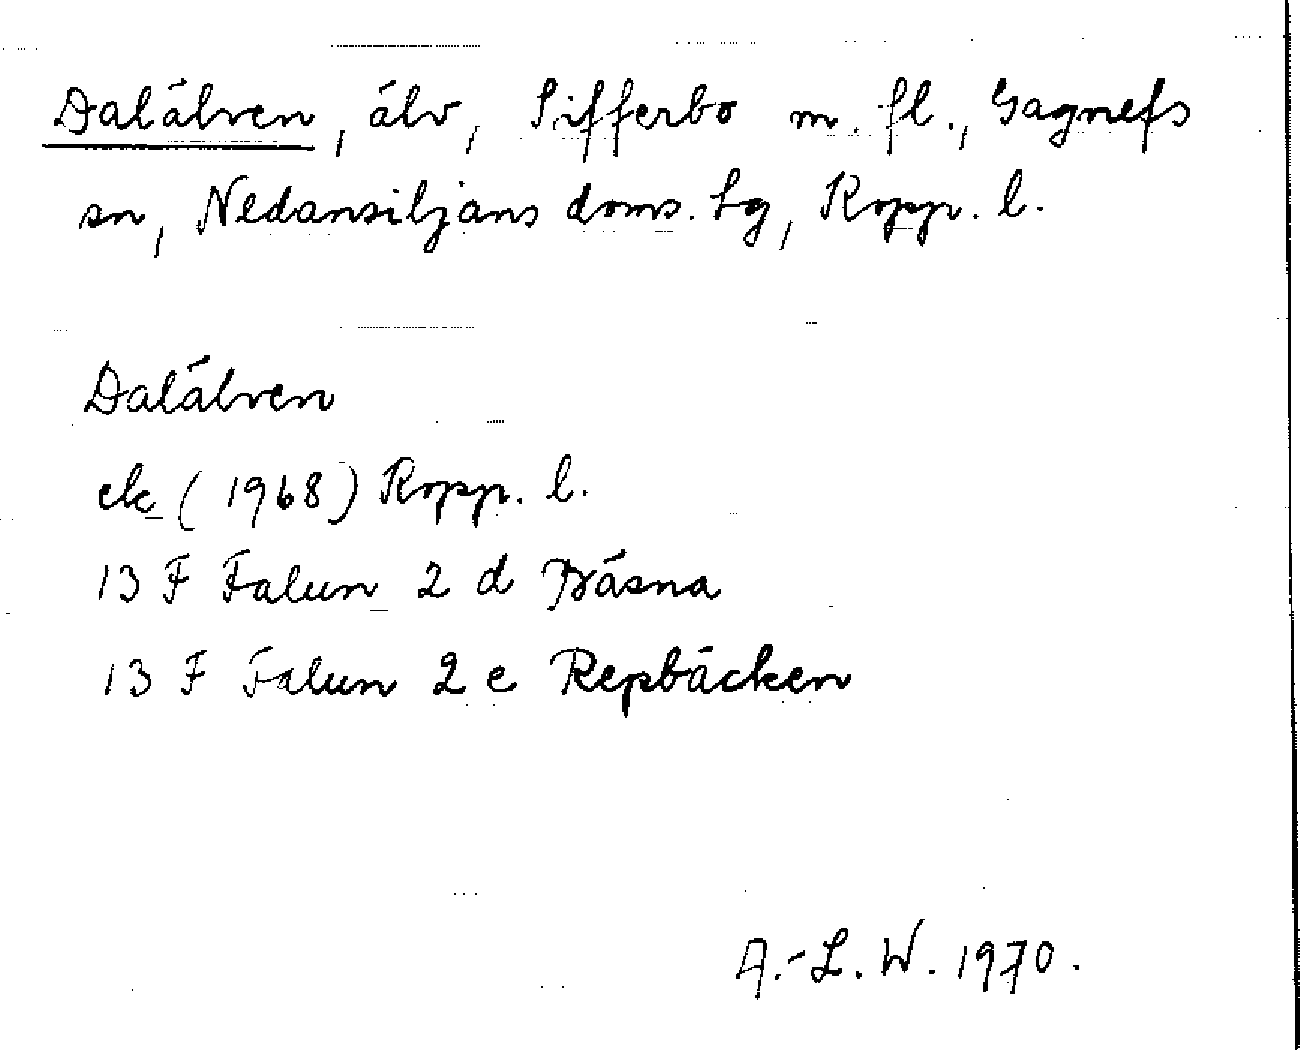 Dalälven, älv, Sifferbo m. fl., Gagnefs
sn, Nedansiljans doms. tg, Kopp. l.
Dalälven
ek (1968) Kopp. l.
13 F Falun 2 d Båsna
13 F Falun 2 e Repbäcken
A.-L. W. 1970.